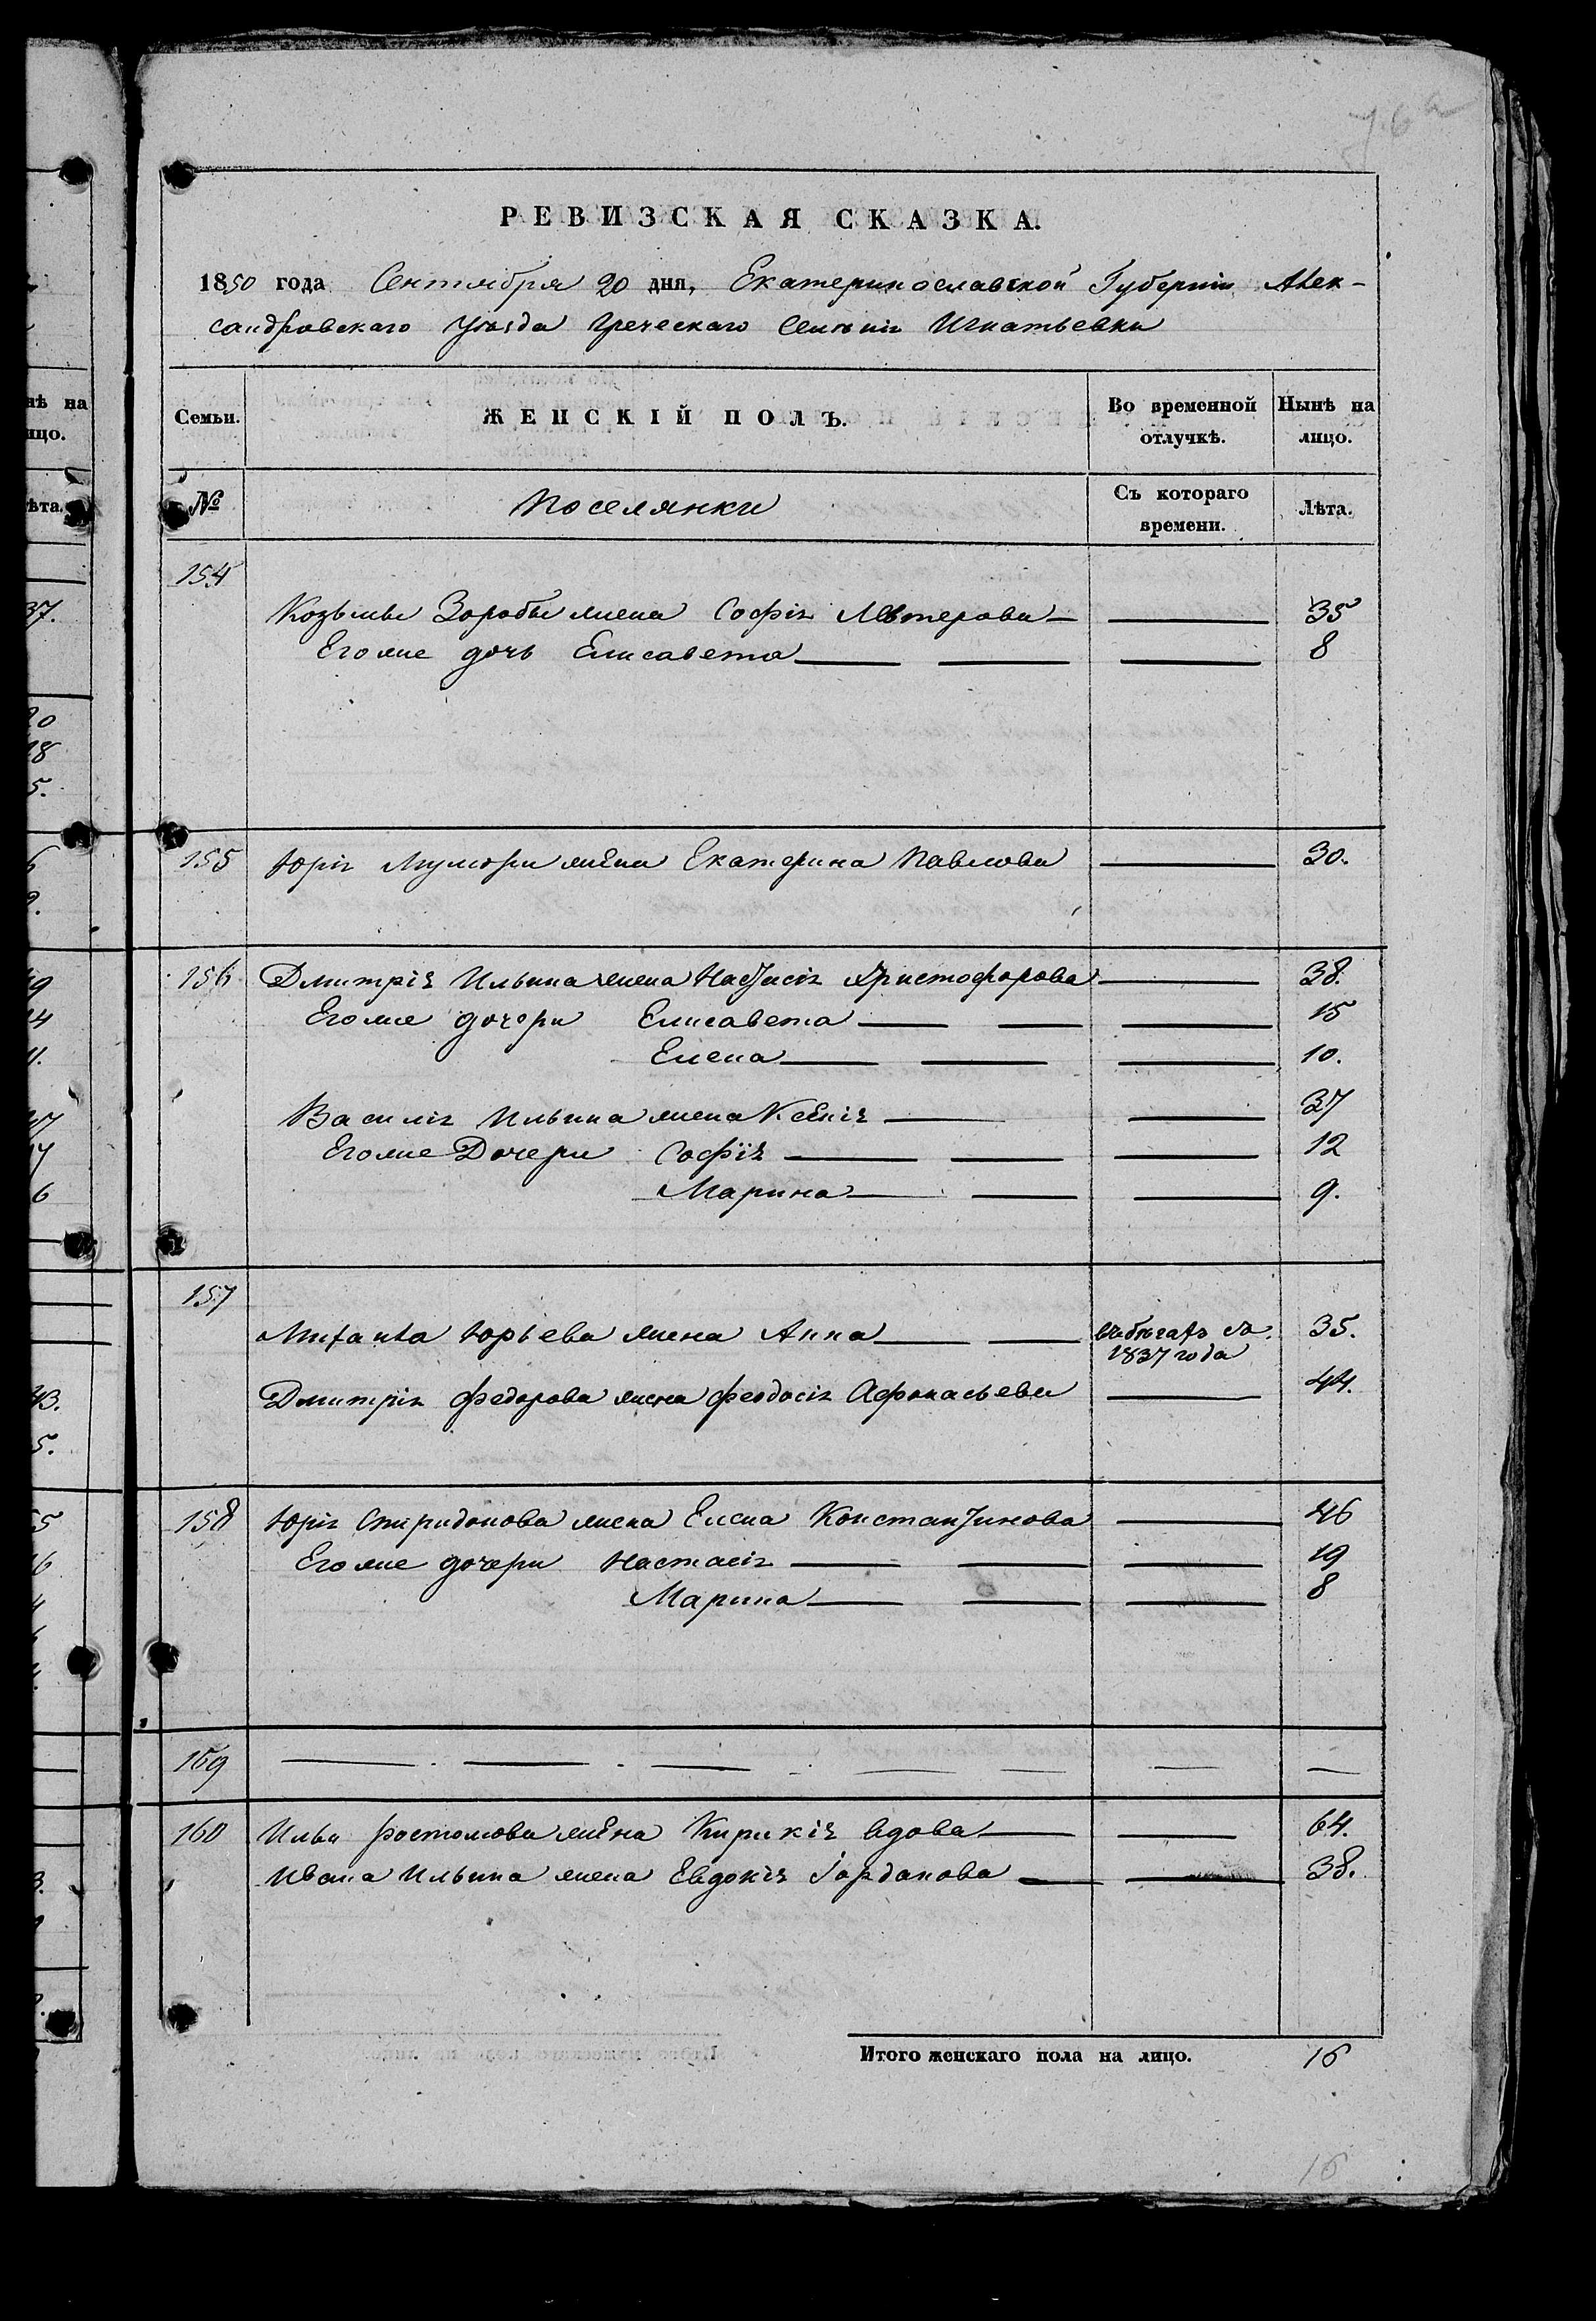 РЕВИЗСКАЯ СКАЗКА.
1850 года Сентября 20 дня, Екатеринославской Губерніи Алек-
сандровскаго Уѣзда Греческаго Селенія Игнатьевки
Семьи. ЖЕНСКІЙ ПОЛЪ. Во временной отлучкѣ. Нынѣ на лицо.
№ Поселянки Съ котораго времени. Лѣта.
154
Козьмы Зоробы жена Софія — 35
Его же дочь Елисавета — 8
155 Юрія жена Екатерина Павлова — 30.
156 Дмитрія Ильина жена Настасія Христофорова — 38.
Его же дочери Елисавета — 15
Елена — 10.
Василія Ильина жена Ксенія — 37
Его же Дочери Софія — 12
Марина — 9.
157
Юрьева жена Анна — въ бѣгахъ съ 1837 года 35.
Дмитрія Федорова жена Феодосія Афонасьева — 44.
158 Юрія Спиридонова жена Елена Константинова — 46
Его же дочери Настасія — 19
Марина — 8
159 — — — — — — —
160 Ильи Ростомова жена Кирикія вдова — 64.
Ивана Ильина жена Евдокія Іорданова — 38.
Итого женскаго пола на лицо. 16
16
нѣ на
ицо.
ѣта.
37.
20
18
5.
43.
5.